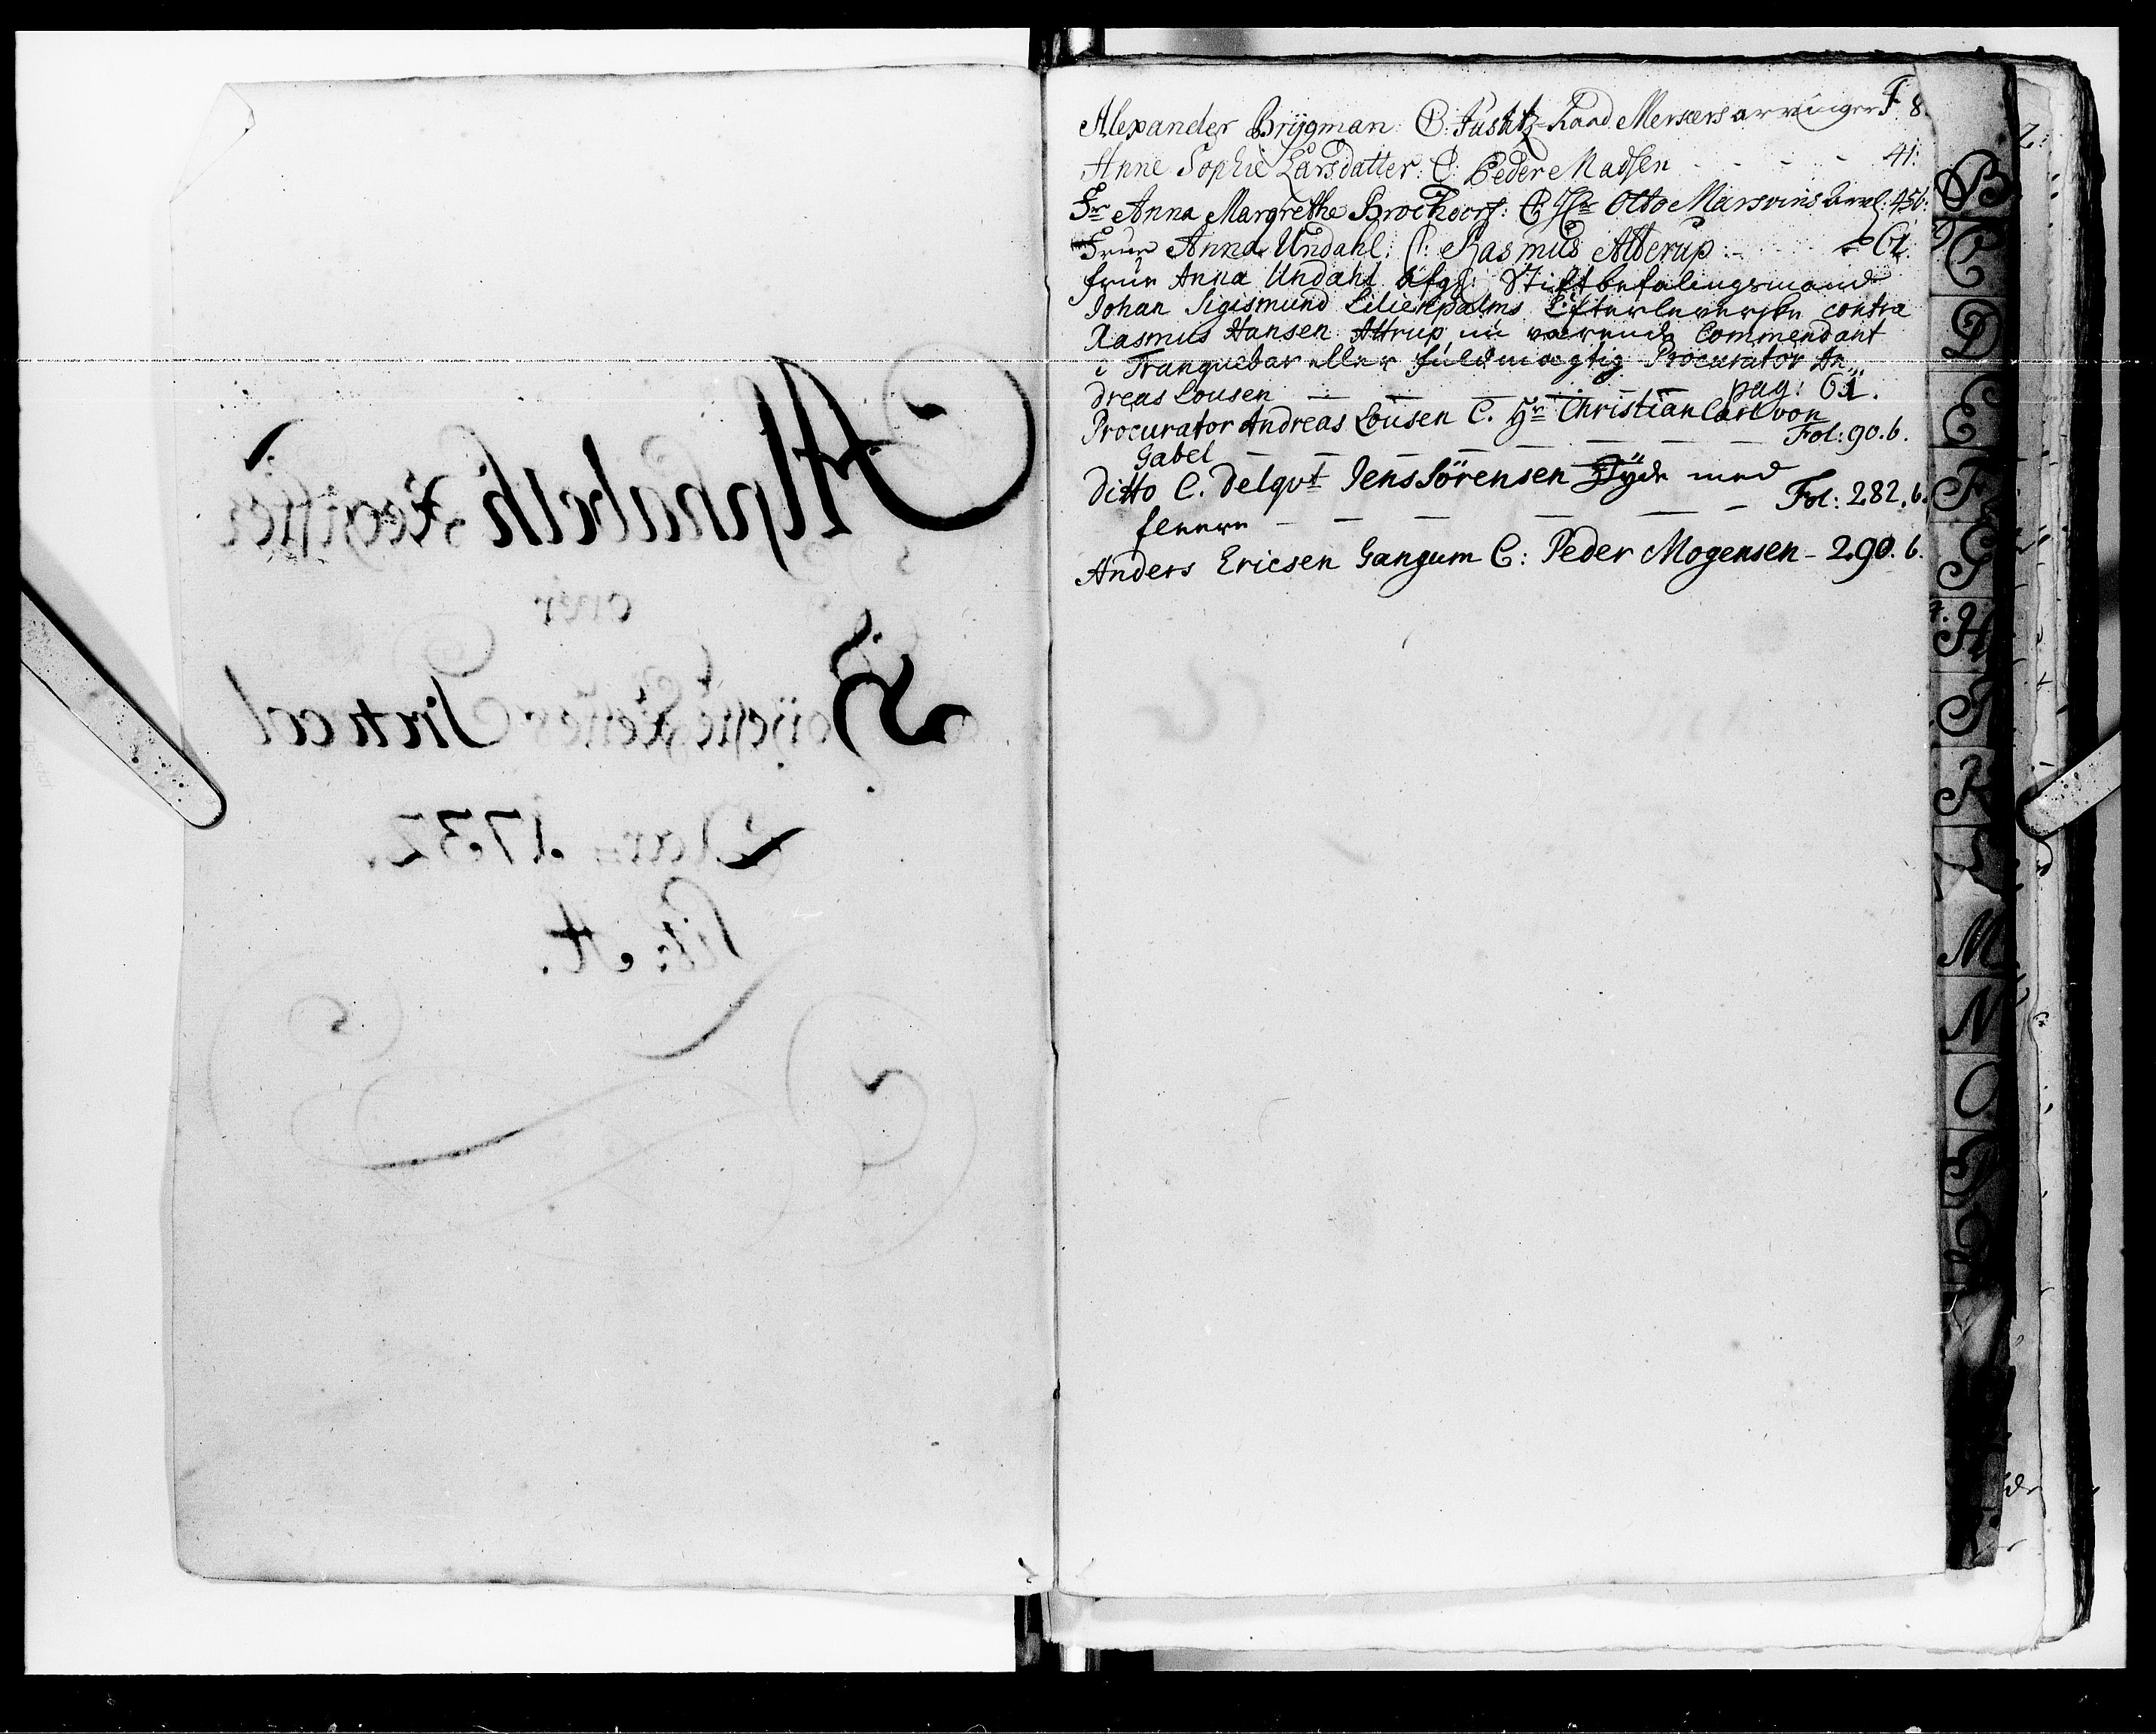 Alphabeth Register
over
Höyeste Rettes Protocol
Aar 1732.
Lit: A.
Alexander Brÿgman: C: Justitz-Raad Mersers arvinger F 8
Anne Sophie Larsdatter: C: Peder Madsen - - - - 41:
Fr Anna Margrethe Brockdorf: C: Hr Otto Marsvins 456:
Frue Anna Undahl: C: Rasmus Atterup - - 61
frue Anna Undahl afg: Stiftbefalingsmand
Johan Sigismund Lilienpalms Efterleverske contra
Rasmus Hansen Attrup nu værende Commendant
i Tranquebar eller fuldmægtig Procurator An„
dreas Lousen — — — — pag: 61.
Procurator Andreas Lousen C. Hr Christian Carl von
Gabel — — — — — Fol: 90.b.
Ditto C. Delqvt Jens Sörensen Hÿde med
fleere — — — — — Fol: 282.b.
Anders Ericsen Gangum C: Peder Mogensen - 290.b.
B
C
D
E
F
G
H
I
K
L
M
N
O